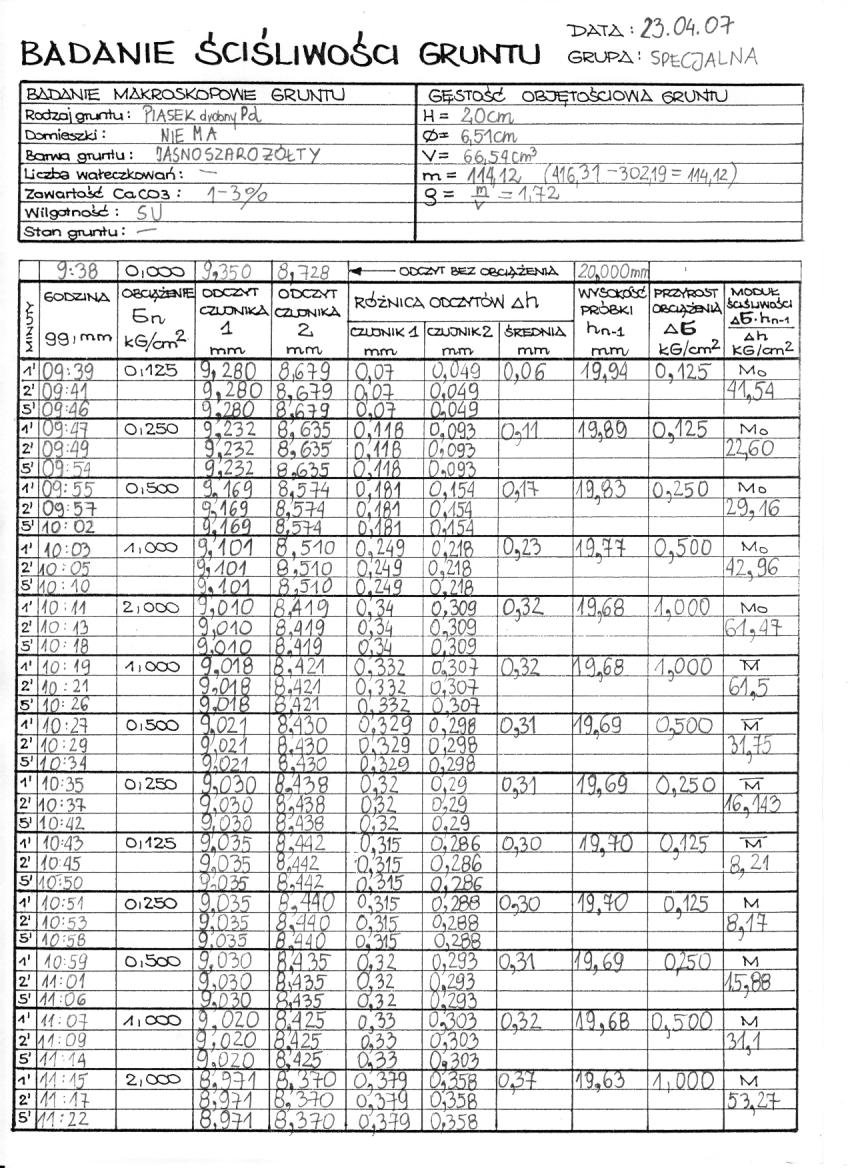 DATA: 23.04.07
BADANIE ŚCIŚLIWOŚCI GRUNTU GRUPA: SPECJALNA
BADANIE MAKROSKOPOWE GRUNTU GĘSTOŚĆ OBJĘTOŚCIOWA GRUNTU
Rodzaj gruntu: PIASEK drobny Pd H = 2,0cm
Domieszki: NIE MA Ø= 6,51cm
Barwa gruntu: JASNOSZAROŻÓŁTY V= 66,54cm³
Liczba wałeczkowań: — m = 114,12 (416,31-302,19 = 114,12)
Zawartość CaCO3: 1-3% ρ = m/V = 1,72
Wilgotność: SU
Stan gruntu: —
9:38 0,000 9,350 8,728 ← ODCZYT BEZ OBCIĄŻENIA 20,000mm
MINUTY GODZINA gg,mm OBCIĄŻENIE σn kG/cm² ODCZYT CZUJNIKA 1 mm ODCZYT CZUJNIKA 2 mm RÓŻNICA ODCZYTÓW Δh CZUJNIK 1 mm CZUJNIK 2 mm ŚREDNIA mm WYSOKOŚĆ PRÓBKI hn-1 mm PRZYROST OBCIĄŻENIA Δσ kG/cm² MODUŁ ŚCIŚLIWOŚCI Δσ·hn-1/Δh kG/cm²
1' 09:39 0,125 9,280 8,679 0,07 0,049 0,06 19,94 0,125 Mo
2' 09:41 9,280 8,679 0,07 0,049 41,54
5' 09:46 9,280 8,679 0,07 0,049
1' 09:47 0,250 9,232 8,635 0,118 0,093 0,11 19,89 0,125 Mo
2' 09:49 9,232 8,635 0,118 0,093 22,60
5' 09:54 9,232 8,635 0,118 0,093
1' 09:55 0,500 9,169 8,574 0,181 0,154 0,17 19,83 0,250 Mo
2' 09:57 9,169 8,574 0,181 0,154 29,16
5' 10:02 9,169 8,574 0,181 0,154
1' 10:03 1,000 9,101 8,510 0,249 0,218 0,23 19,77 0,500 Mo
2' 10:05 9,101 8,510 0,249 0,218 42,96
5' 10:10 9,101 8,510 0,249 0,218
1' 10:11 2,000 9,010 8,419 0,34 0,309 0,32 19,68 1,000 Mo
2' 10:13 9,010 8,419 0,34 0,309 61,47
5' 10:18 9,010 8,419 0,34 0,309
1' 10:19 1,000 9,018 8,421 0,332 0,307 0,32 19,68 1,000 M̅
2' 10:21 9,018 8,421 0,332 0,307 61,5
5' 10:26 9,018 8,421 0,332 0,307
1' 10:27 0,500 9,021 8,430 0,329 0,298 0,31 19,69 0,500 M̅
2' 10:29 9,021 8,430 0,329 0,298 31,75
5' 10:34 9,021 8,430 0,329 0,298
1' 10:35 0,250 9,030 8,438 0,32 0,29 0,31 19,69 0,250 M̅
2' 10:37 9,030 8,438 0,32 0,29 16,143
5' 10:42 9,030 8,438 0,32 0,29
1' 10:43 0,125 9,035 8,442 0,315 0,286 0,30 19,70 0,125 M̅
2' 10:45 9,035 8,442 0,315 0,286 8,21
5' 10:50 9,035 8,442 0,315 0,286
1' 10:51 0,250 9,035 8,440 0,315 0,288 0,30 19,70 0,125 M
2' 10:53 9,035 8,440 0,315 0,288 8,17
5' 10:58 9,035 8,440 0,315 0,288
1' 10:59 0,500 9,030 8,435 0,32 0,293 0,31 19,69 0,250 M
2' 11:01 9,030 8,435 0,32 0,293 15,88
5' 11:06 9,030 8,435 0,32 0,293
1' 11:07 1,000 9,020 8,425 0,33 0,303 0,32 19,68 0,500 M
2' 11:09 9,020 8,425 0,33 0,303 31,1
5' 11:14 9,020 8,425 0,33 0,303
1' 11:15 2,000 8,971 8,370 0,379 0,358 0,37 19,63 1,000 M
2' 11:17 8,971 8,370 0,379 0,358 53,27
5' 11:22 8,971 8,370 0,379 0,358